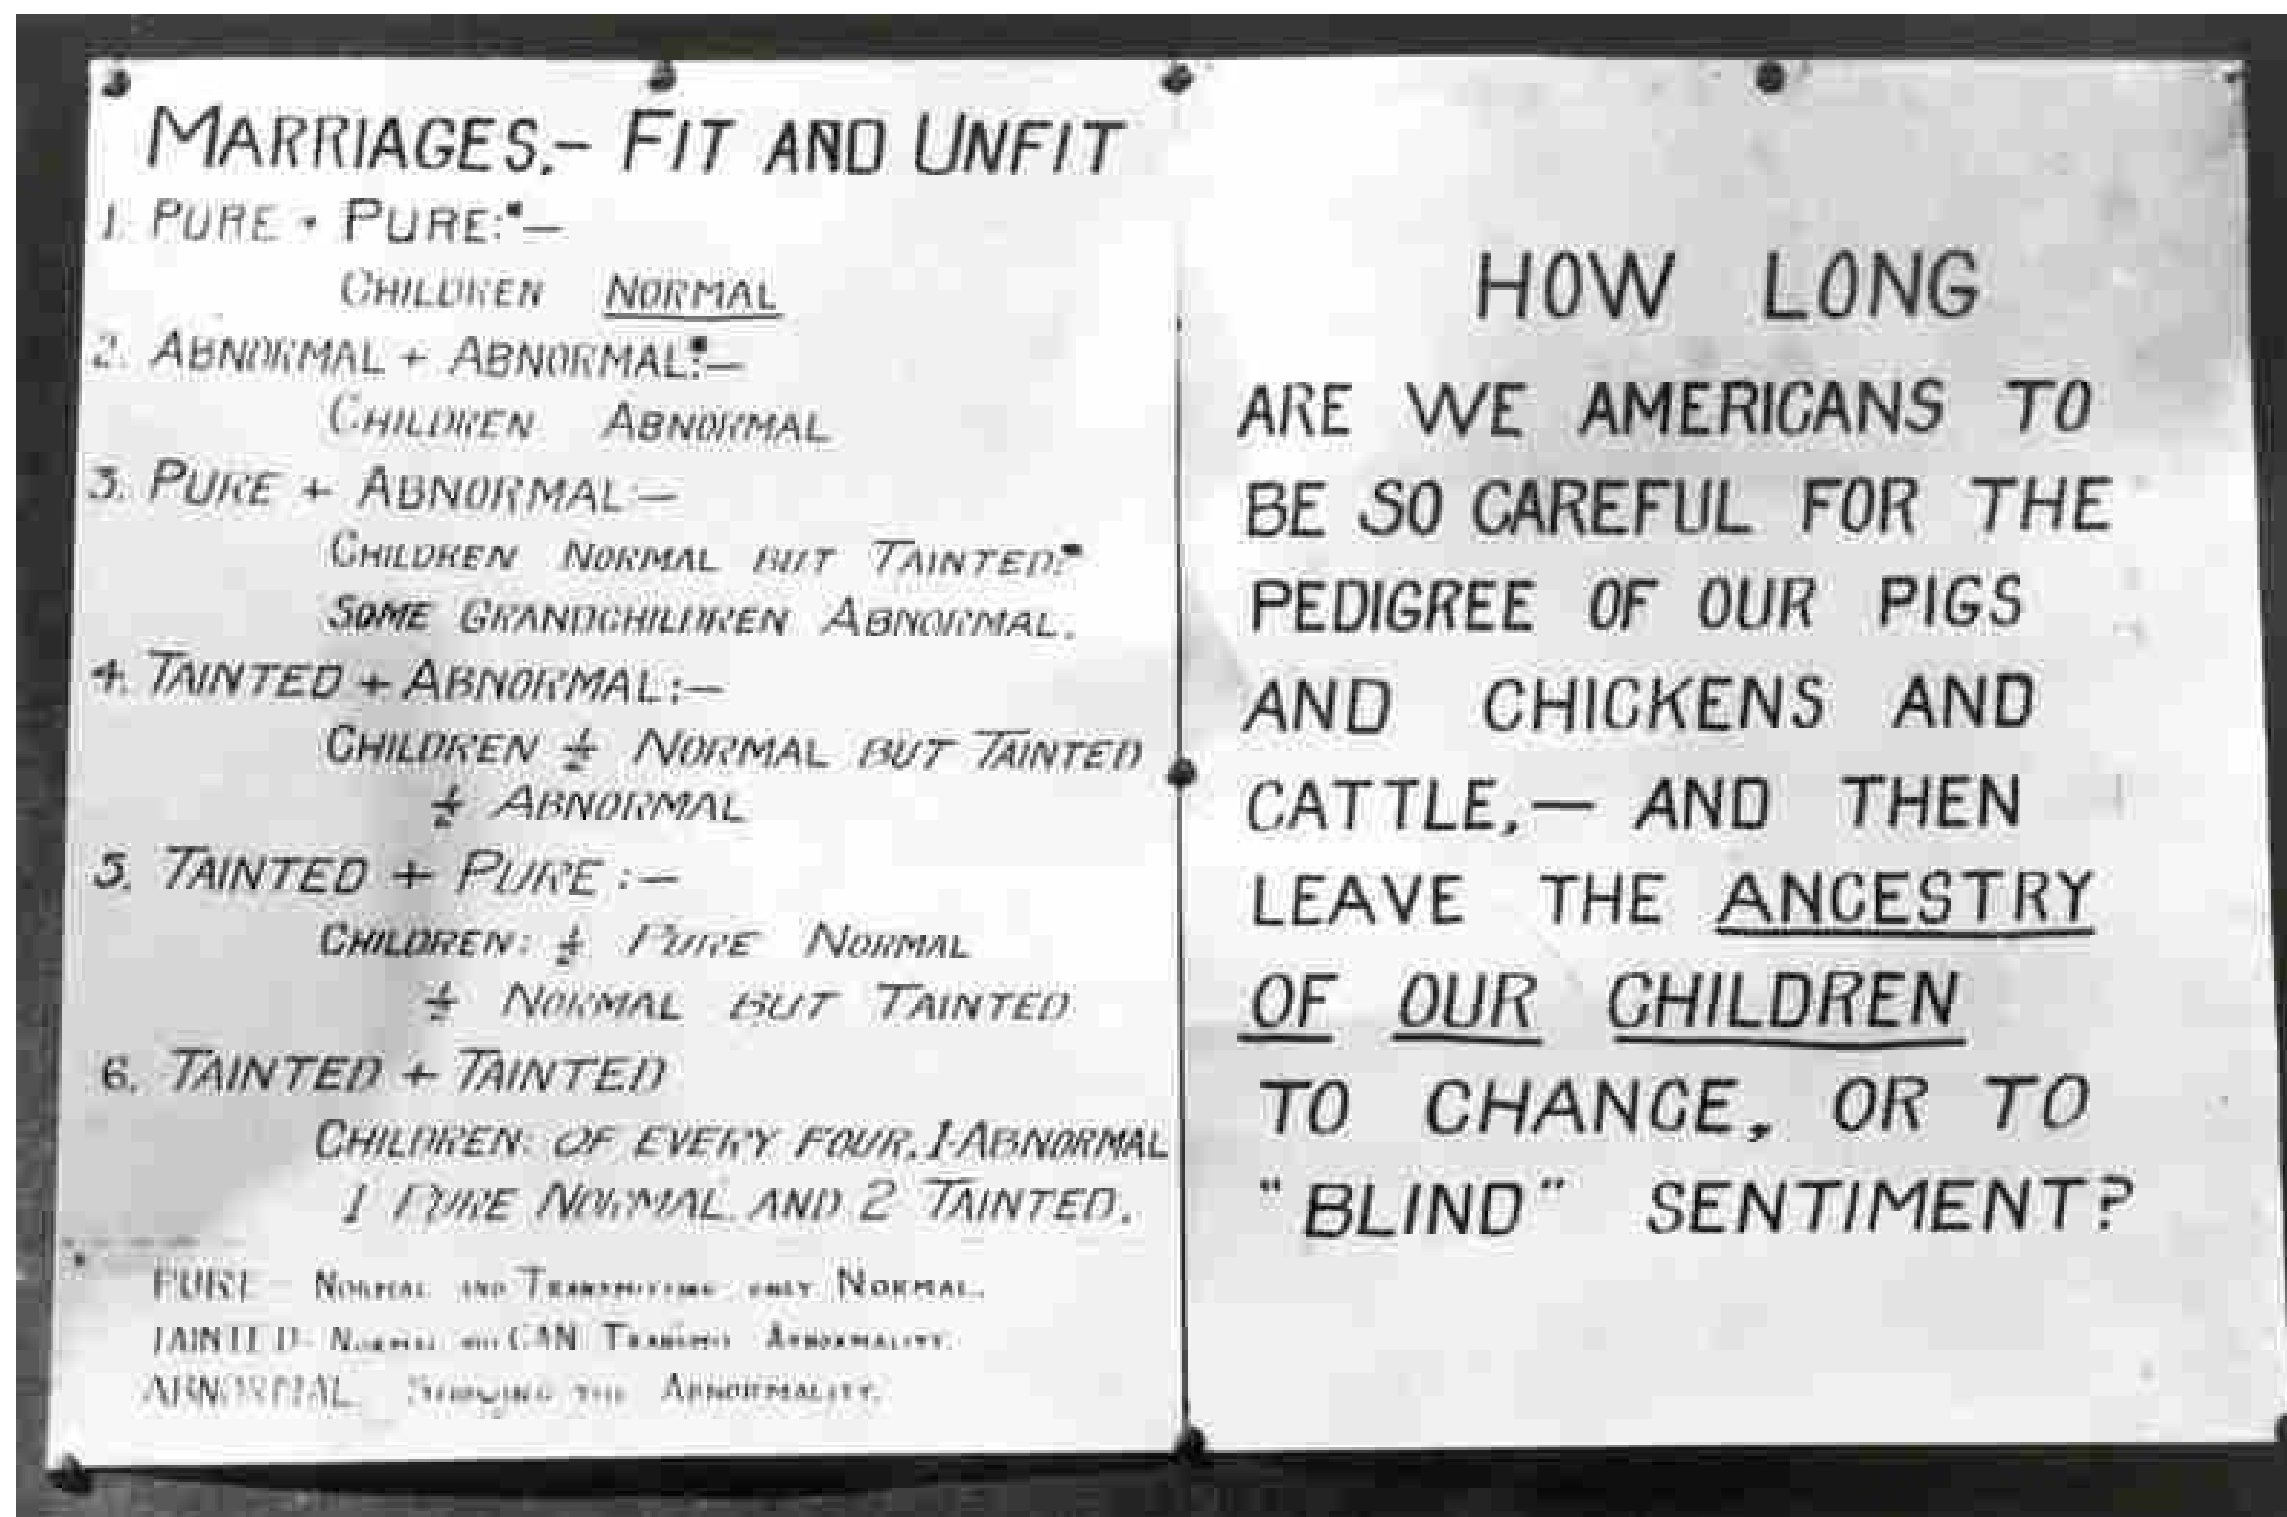 MARRIAGES.- FIT AND UNFIT
1. PURE + PURE:-
CHILDREN NORMAL
2. ABNORMAL + ABNORMAL:-
CHILDREN ABNORMAL
3. PURE + ABNORMAL:-
CHILDREN NORMAL BUT TAINTED:
SOME GRANDCHILDREN ABNORMAL.
4. TAINTED + ABNORMAL:-
CHILDREN ½ NORMAL BUT TAINTED
½ ABNORMAL
5. TAINTED + PURE:-
CHILDREN: ½ PURE NORMAL
½ NORMAL BUT TAINTED
6. TAINTED + TAINTED
CHILDREN: OF EVERY FOUR, 1 ABNORMAL
1 PURE NORMAL AND 2 TAINTED.
PURE NORMAL AND TRANSMITTING ONLY NORMAL.
TAINTED- NORMAL CAN TRANSMIT ABNORMALITY.
ABNORMAL SHOWING THE ABNORMALITY.
HOW LONG
ARE WE AMERICANS TO
BE SO CAREFUL FOR THE
PEDIGREE OF OUR PIGS
AND CHICKENS AND
CATTLE,— AND THEN
LEAVE THE ANCESTRY
OF OUR CHILDREN
TO CHANCE, OR TO
"BLIND" SENTIMENT?